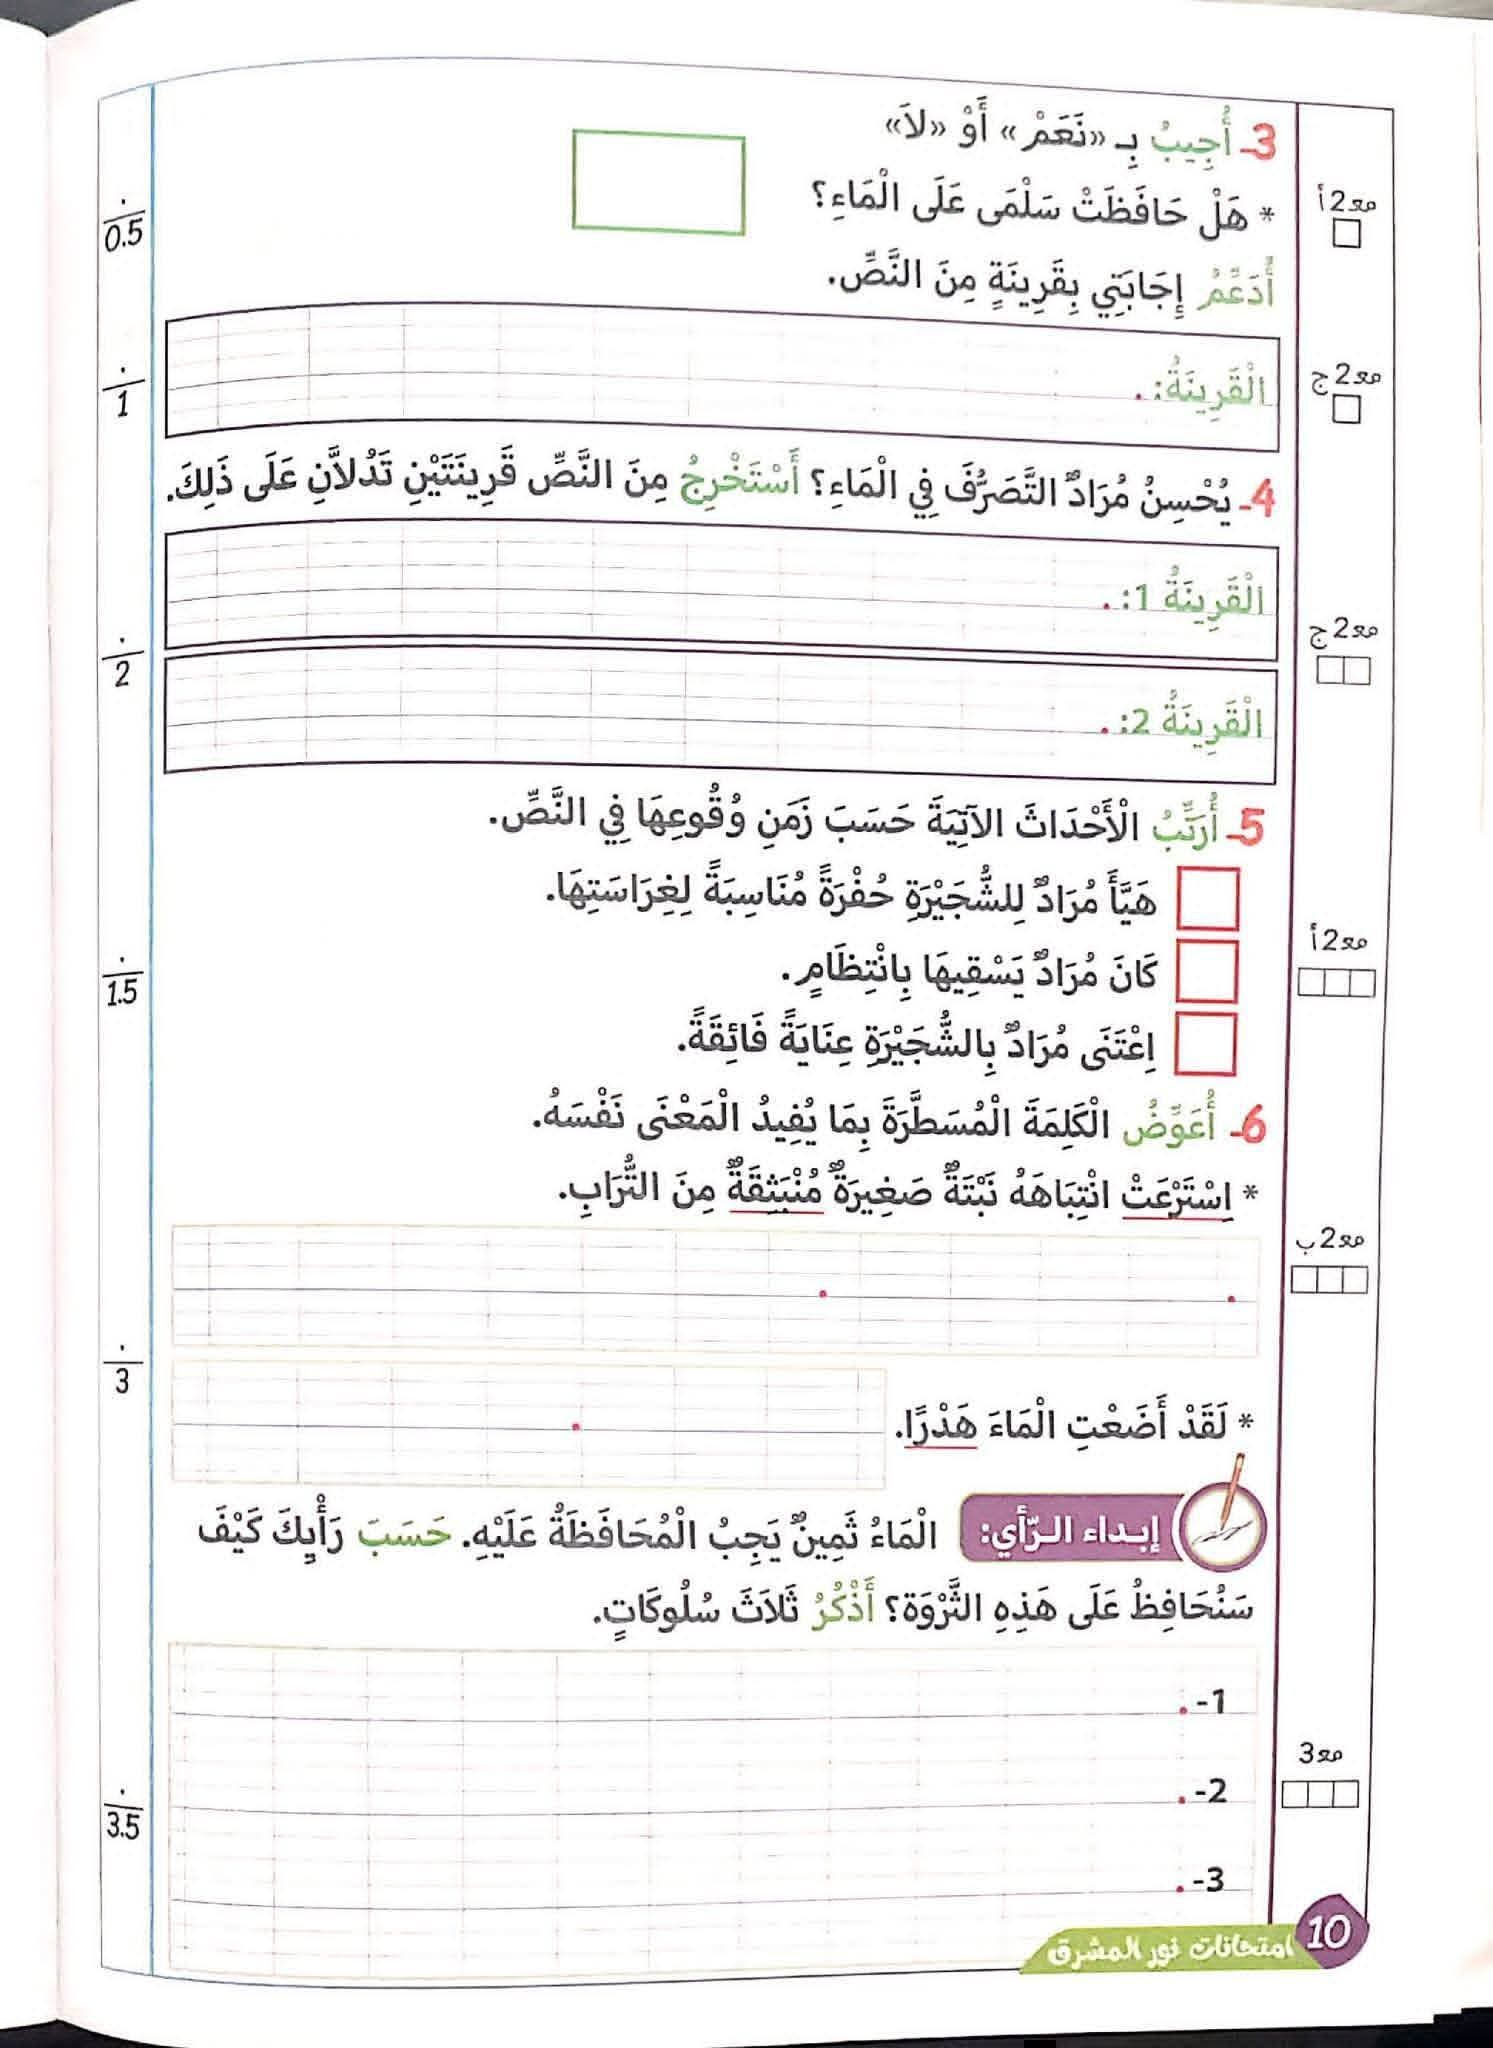 3- أُجِيبُ بِـ «نَعَمْ» أَوْ «لاَ»
* هَلْ حَافَظَتْ سَلْمَى عَلَى الْمَاءِ؟
مع2 أ
0.5
أُدَعِّمُ إِجَابَتِي بِقَرِينَةٍ مِنَ النَّصِّ.
الْقَرِينَةُ: .
مع2 ج
1
4- يُحْسِنُ مُرَادٌ التَّصَرُّفَ فِي الْمَاءِ؟ أَسْتَخْرِجُ مِنَ النَّصِّ قَرِينَتَيْنِ تَدُلاَّنِ عَلَى ذَلِكَ.
الْقَرِينَةُ 1: .
مع2 ج
2
الْقَرِينَةُ 2: .
5- أُرَتِّبُ الْأَحْدَاثَ الآتِيَةَ حَسَبَ زَمَنِ وُقُوعِهَا فِي النَّصِّ.
هَيَّأَ مُرَادٌ لِلشُّجَيْرَةِ حُفْرَةً مُنَاسِبَةً لِغِرَاسَتِهَا.
مع2 أ
كَانَ مُرَادٌ يَسْقِيهَا بِانْتِظَامٍ.
1.5
اِعْتَنَى مُرَادٌ بِالشُّجَيْرَةِ عِنَايَةً فَائِقَةً.
6- أُعَوِّضُ الْكَلِمَةَ الْمُسَطَّرَةَ بِمَا يُفِيدُ الْمَعْنَى نَفْسَهُ.
* اِسْتَرْعَتْ انْتِبَاهَهُ نَبْتَةٌ صَغِيرَةٌ مُنْبَثِقَةٌ مِنَ التُّرَابِ.
مع2 ب
3
* لَقَدْ أَضَعْتِ الْمَاءَ هَدْرًا.
إبداء الرّأي: الْمَاءُ ثَمِينٌ يَجِبُ الْمُحَافَظَةُ عَلَيْهِ. حَسَبَ رَأْيِكَ كَيْفَ
سَنُحَافِظُ عَلَى هَذِهِ الثَّرْوَة؟ أَذْكُرُ ثَلاَثَ سُلُوكَاتٍ.
1- .
مع3
2- .
3.5
3- .
10
امتحانات نور المشرق